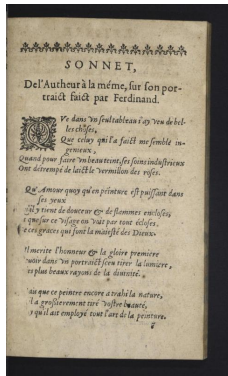 SONNET,
De l'Autheur à la méme, sur son por-
traict faict par Ferdinand.
QVe dans vn seul tableau i'ay veu de bel-
les choses,
Que celuy qui l'a faict me semble in-
genieux,
Quand pour faire vn beau teint, ses soins industrieux
Ont détrempé de laict le vermillon des roses.
Qu'Amour quoy qu'en peinture est puissant dans
ses yeux
tient de douceur & de flammes encloses,
que sur ce visage on voit par tout écloses.
ces graces qui font la maiesté des Dieux.
merite l'honneur & la gloire premiere
voir dans vn portraict sceu tirer la lumiere,
es plus beaux rayons de la diuinité.
que ce peintre encore a trahi la nature,
a grossierement tiré vostre beauté,
qu'il ait employé tout l'art de la peinture.